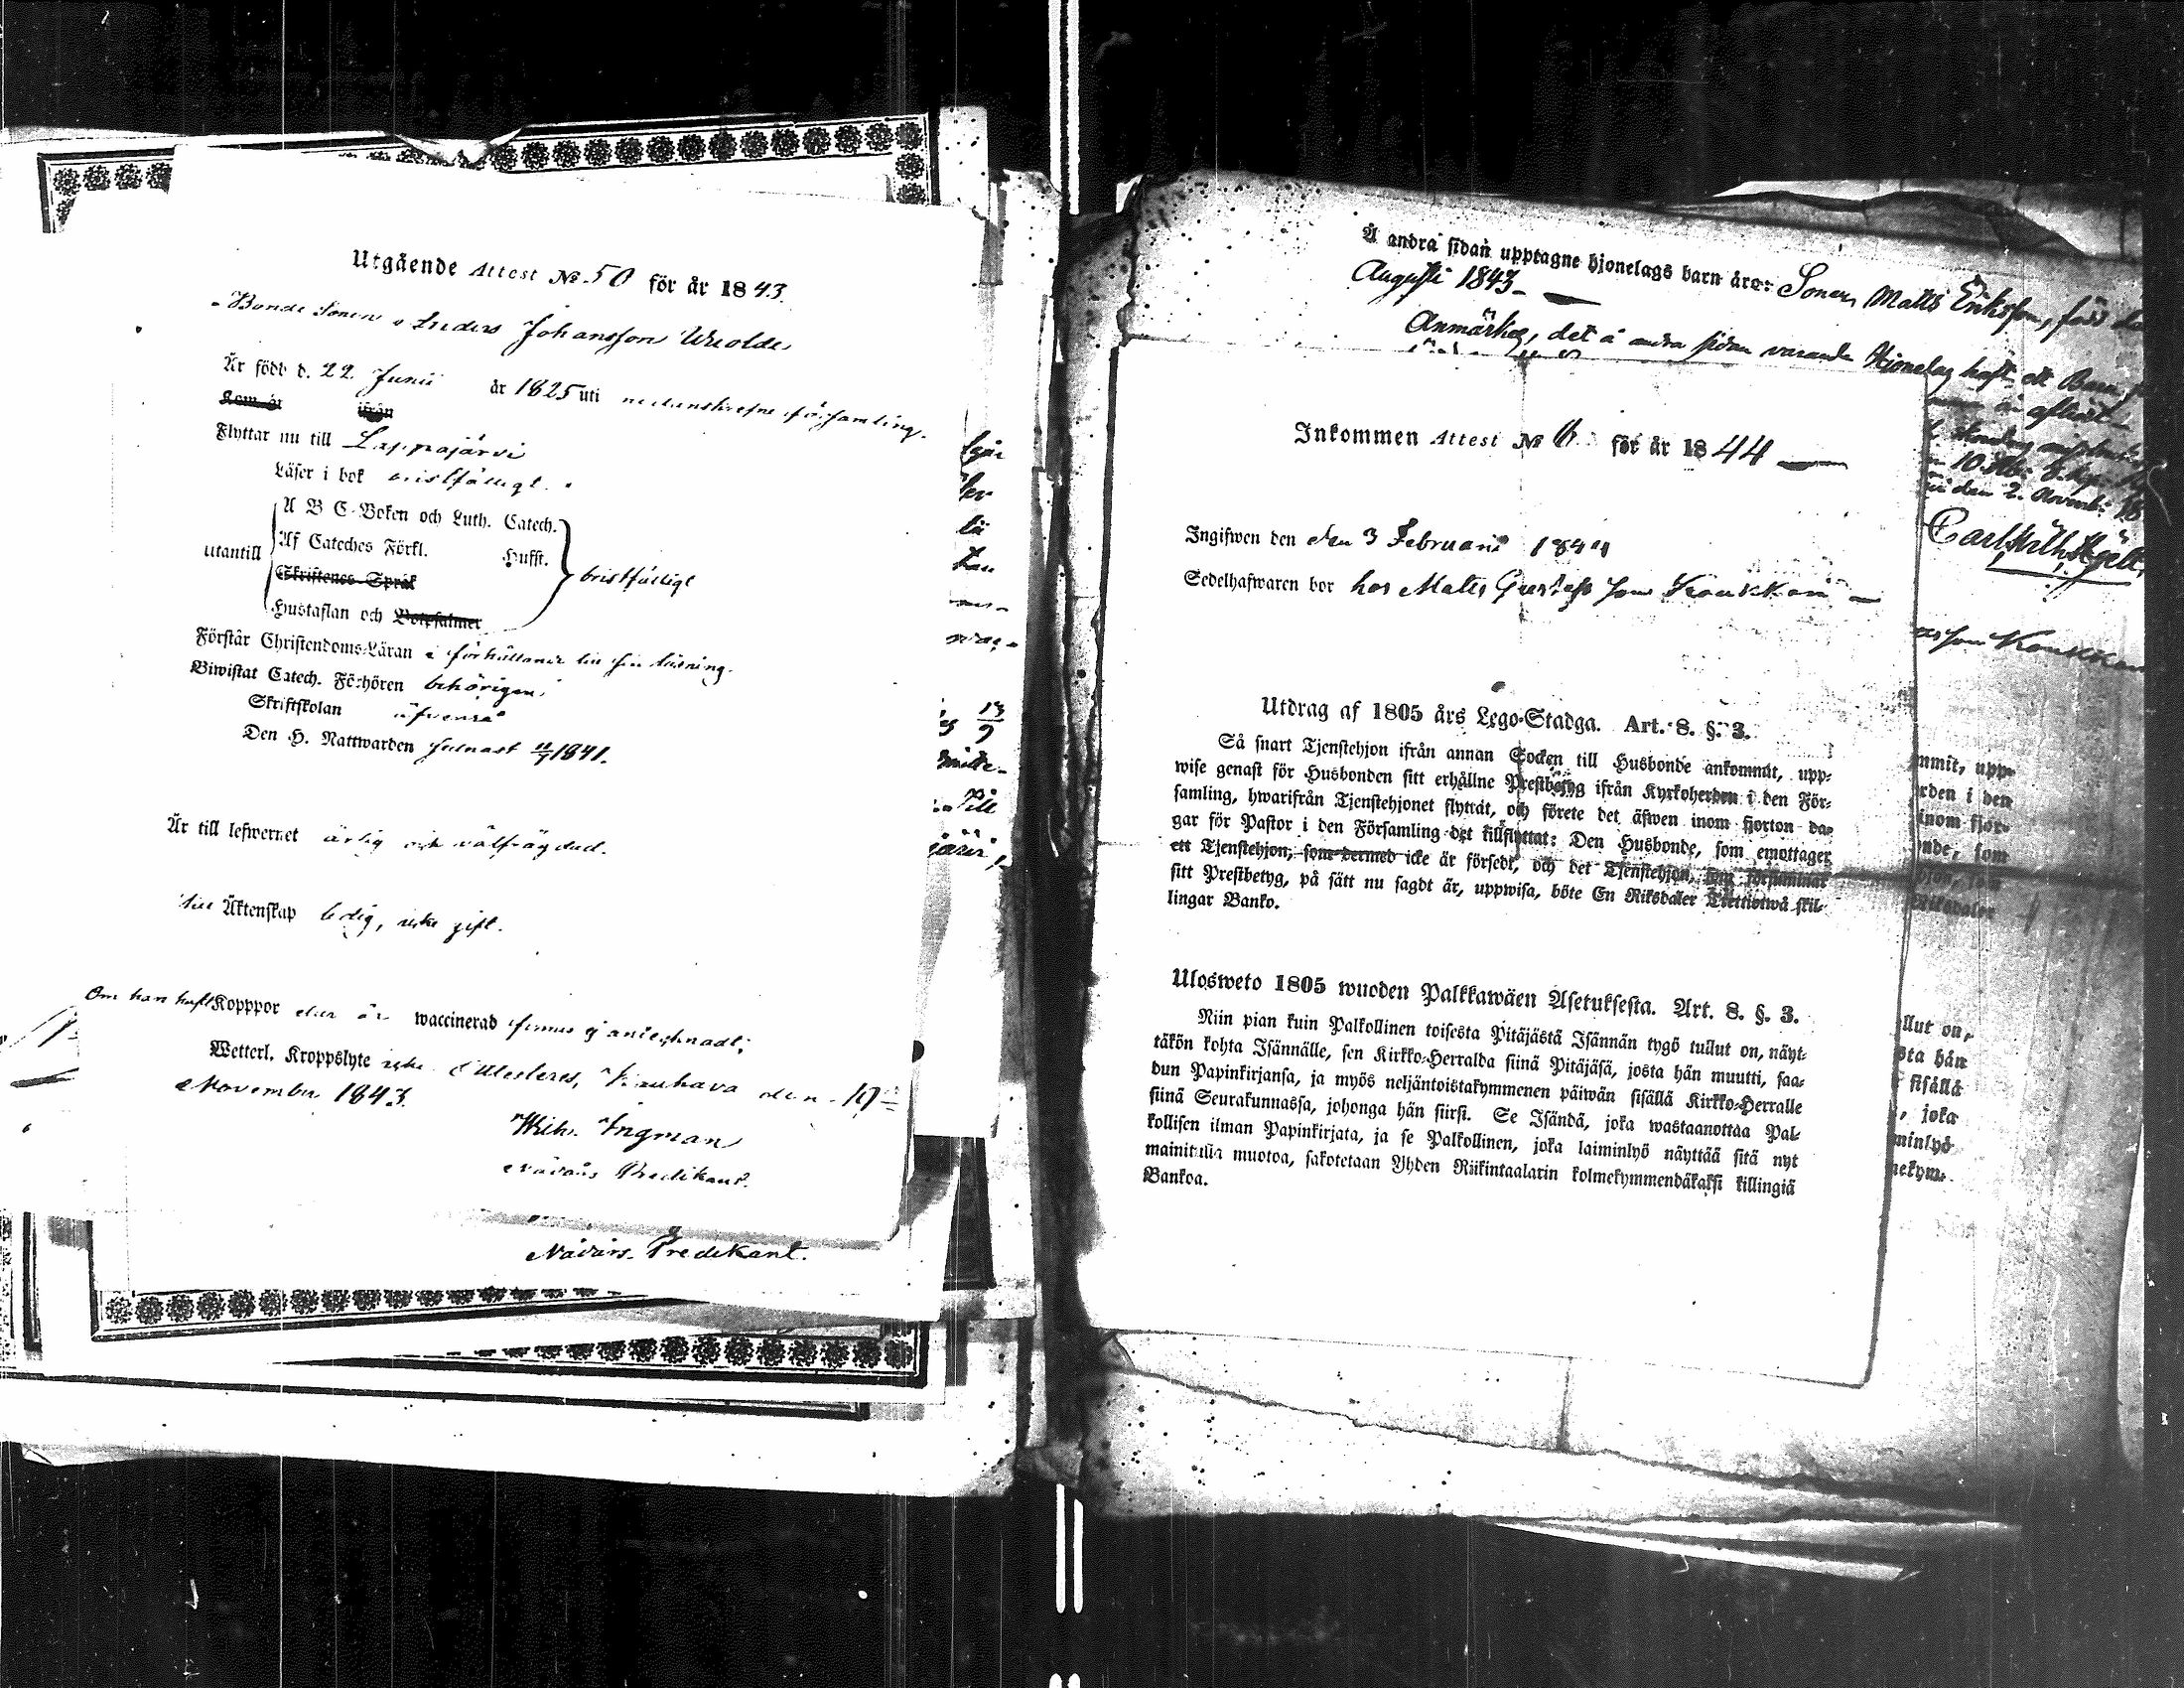 Utgående Attest № 50 för år 1843.
Bonde Sonen Anders Johansson
Är född d. 22 Junii år 1825 uti nedanskrefne församling.
Kom år ifrån
Flyttar nu till Lappajärvi
Läser i bok bristfälligt.
utantill
A B C-Boken och Luth. Catech.
Af Cateches Förkl. Husft.
Skriftenes Språk
Hustaflan och Botpsalmer
bristfälligt
Förstår Christendoms-Läran i förhållande till sin läsning.
Biwistat Catech. Förhören behörigen
Skriftskolan äfvenså
Den H. Nattwarden senast 1841.
Är till lefwernet ärlig och välfrägdad.
till Äktenskap ledig, icke gift.
Om han haft Kopppor eller är waccinerad finnes ej antecknadt;
Wetterl. Kroppslyte icke. Attesteres, Kauhava den 17
November 1843.
Wilh. Ingman
Nådårs Predikant.
Nådårs. Predikant.
Å andra sidan upptagne hjonelags barn äro: Sonen Matts Eriksson, född
Augusti 1843
Anmärkes, det å andra sidan varande Hjonelag haft ett Barn
Inkommen Attest № 6 för år 1844
Ingifwen den den 3 Februari 1844
Sedelhafwaren bor hos Matts Gustafsson Koukkari
Carl Wilh. Hjelt
Utdrag af 1805 års Lego-Stadga. Art. 8. §. 3.
Så snart Tjenstehjon ifrån annan Socken till Husbonde ankommit, upp-
wise genast för Husbonden sitt erhållne Prestbetyg ifrån Kyrkoherden i den För-
samling, hwarifrån Tjenstehjonet flyttat, och förete det äfwen inom fjorton da-
gar för Pastor i den Församling det tillflyttat: Den Husbonde, som emottager
ett Tjenstehjon, som dermed icke är försedt, och det Tjenstehjon, som försummar
sitt Prestbetyg, på sätt nu sagdt är, uppwisa, böte En Riksdaler Trettiotwå skil-
lingar Banko.
Ulosweto 1805 wuoden Palkkawäen Asetuksesta. Art. 8. §. 3.
Niin pian kuin Palkollinen toisesta Pitäjästä Isännän tygö tullut on, näyt-
täkön kohta Isännälle, sen Kirkko-Herralda siinä Pitäjäsä, josta hän muutti, saa-
dun Papinkirjansa, ja myös neljäntoistakymmenen päiwän sisällä Kirkko-Herralle
siinä Seurakunnassa, johonga hän siirsi. Se Isändä, joka wastaanottaa Pal-
kollisen ilman Papinkirjata, ja se Palkollinen, joka laiminlyö näyttää sitä nyt
mainitulla muotoa, sakotetaan Yhden Riikintaalarin kolmekymmendäkaksi killingiä
Bankoa.